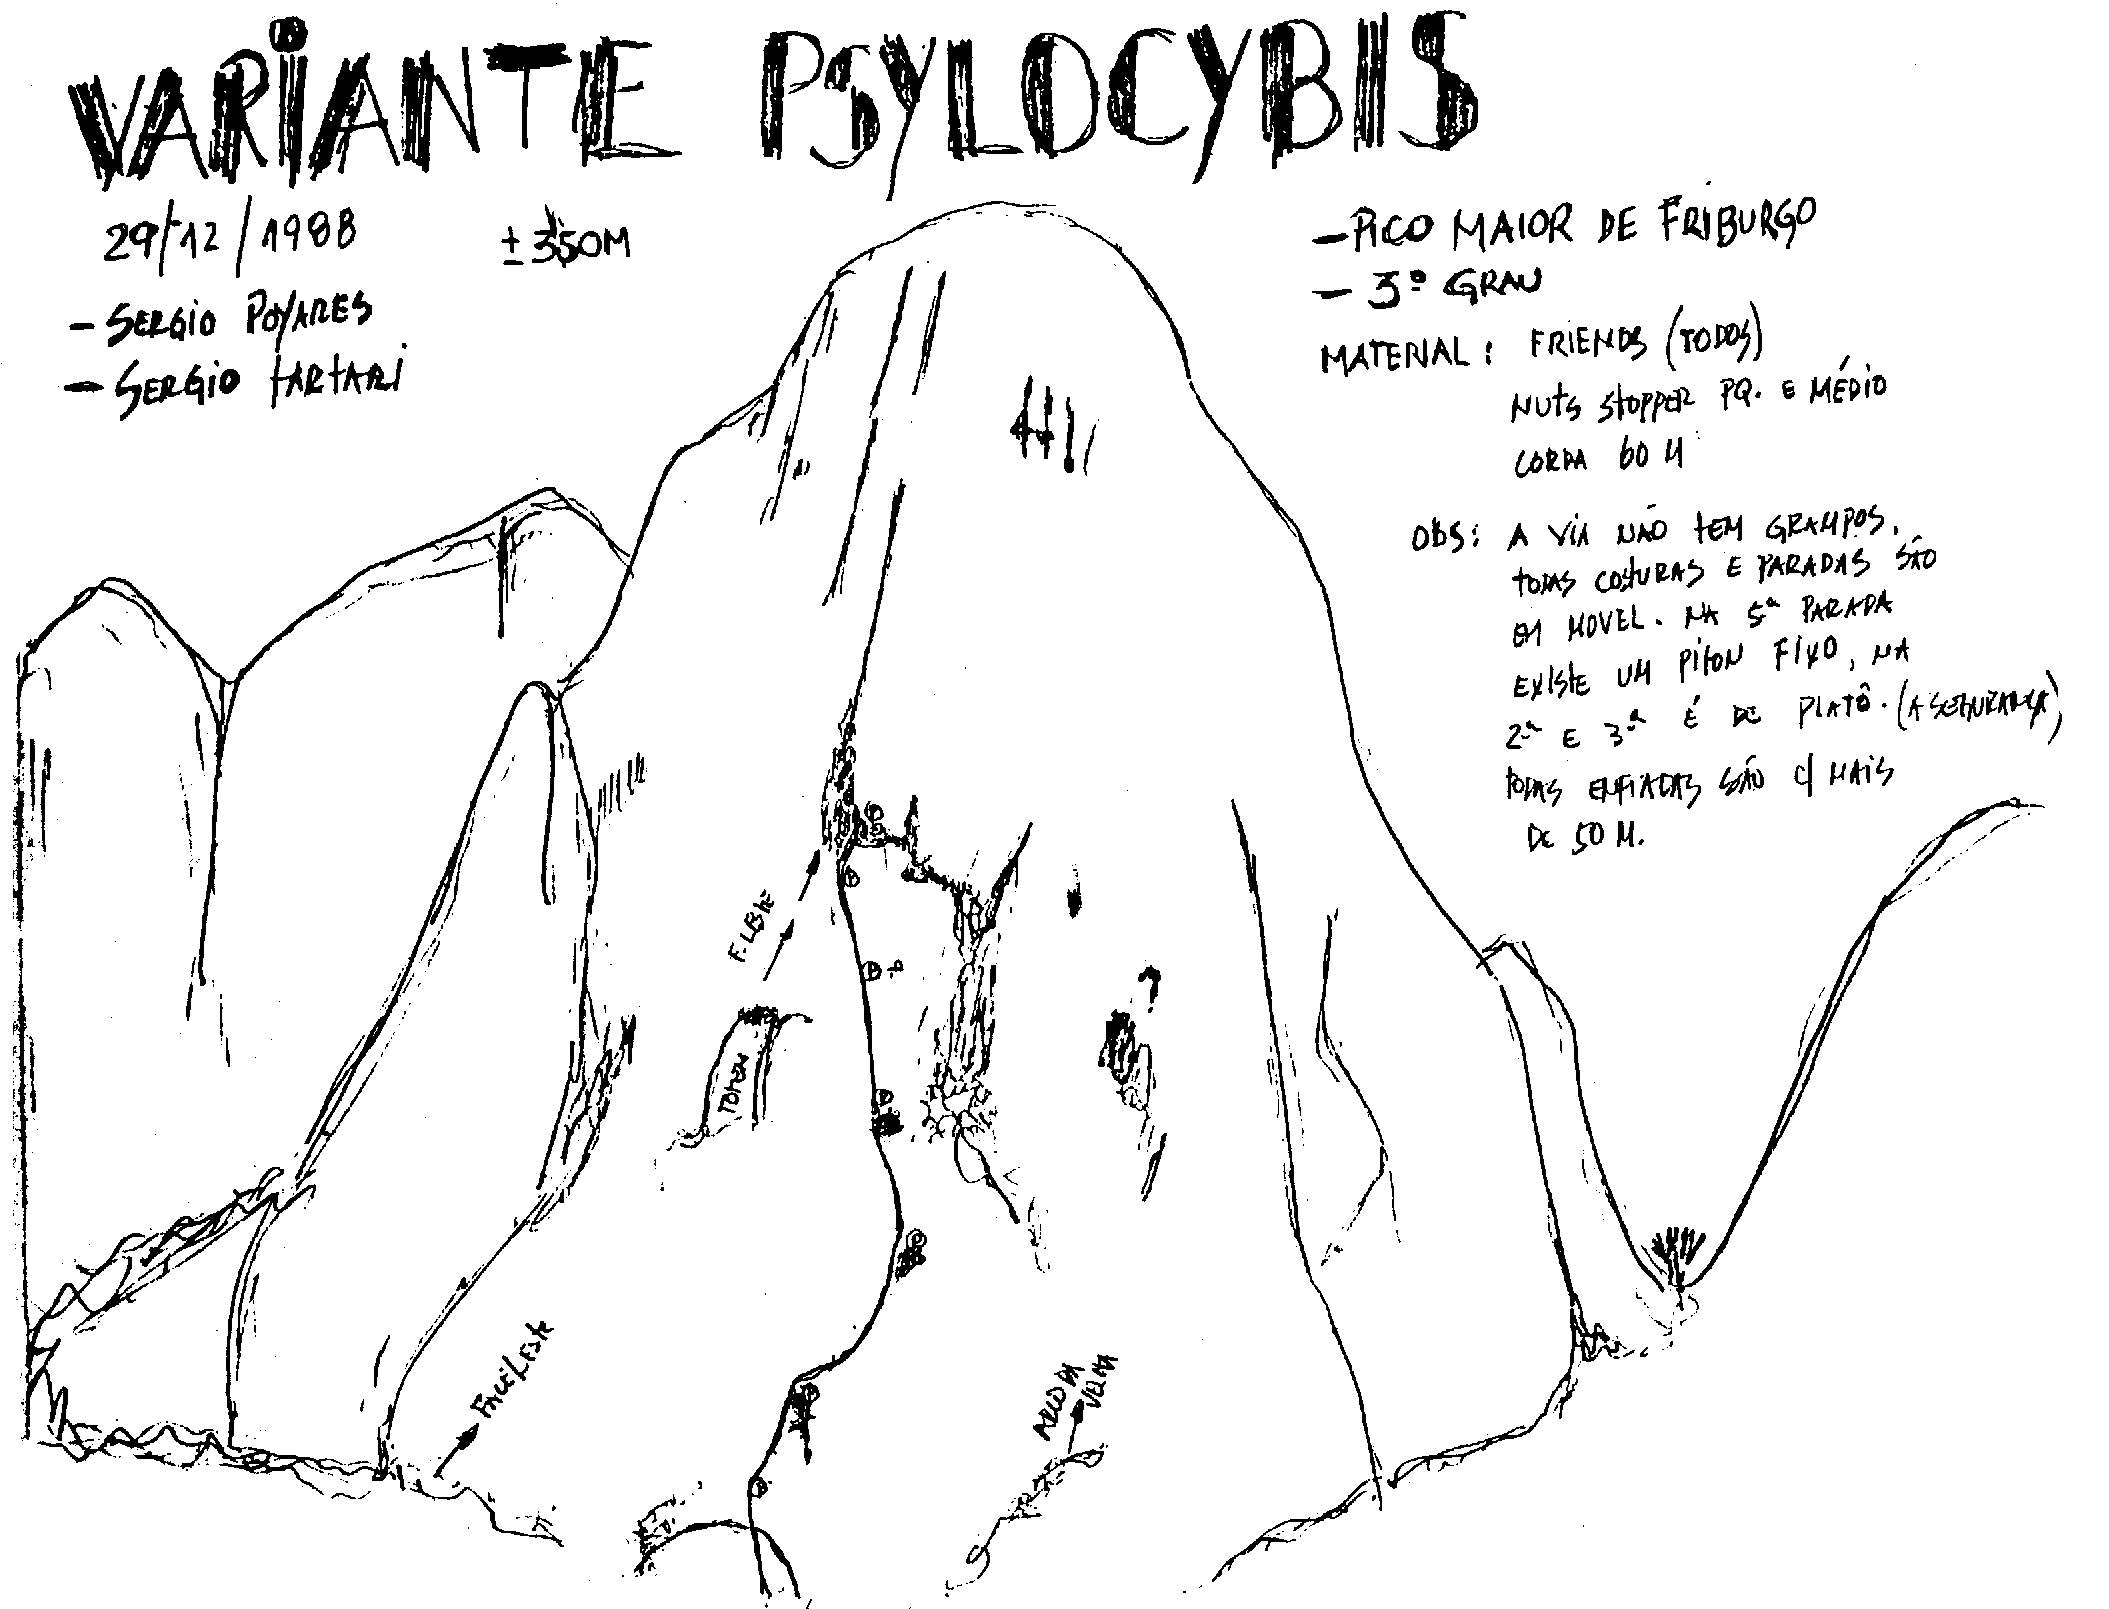 VARIANTE PSYLOCYBIS
29/12/1988
± 350M
- SERGIO POYARES
- SERGIO TARTARI
- PICO MAIOR DE FRIBURGO
- 3º GRAU
MATERIAL: FRIENDS (TODOS)
NUTS STOPPER PQ. E MÉDIO
CORDA 60 M
OBS: A VIA NÃO TEM GRAMPOS.
TODAS COSTURAS E PARADAS SÃO
EM MOVEL. NA 5ª PARADA
EXISTE UM PITON FIXO, NA
2ª E 3ª É DE PLATÔ. (A SEGURANÇA)
TODAS ENFIADAS SÃO C/ MAIS
DE 50 M.
F. LESTE
TOTEM
FACE LESTE
ARCO DA
VELHA